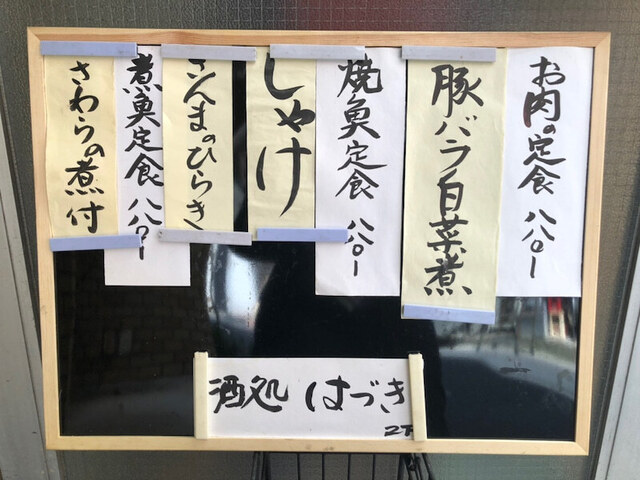 お肉の定食 八八〇ー
豚バラ白菜煮
焼魚定食 八八〇ー
しゃけ
さんまのひらき
煮魚定食 八八〇ー
さわらの煮付
酒処 はづき
2F